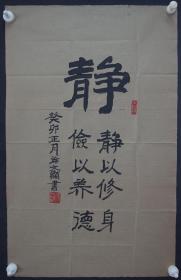 静
静以修身
儉以养德
癸卯正月
書